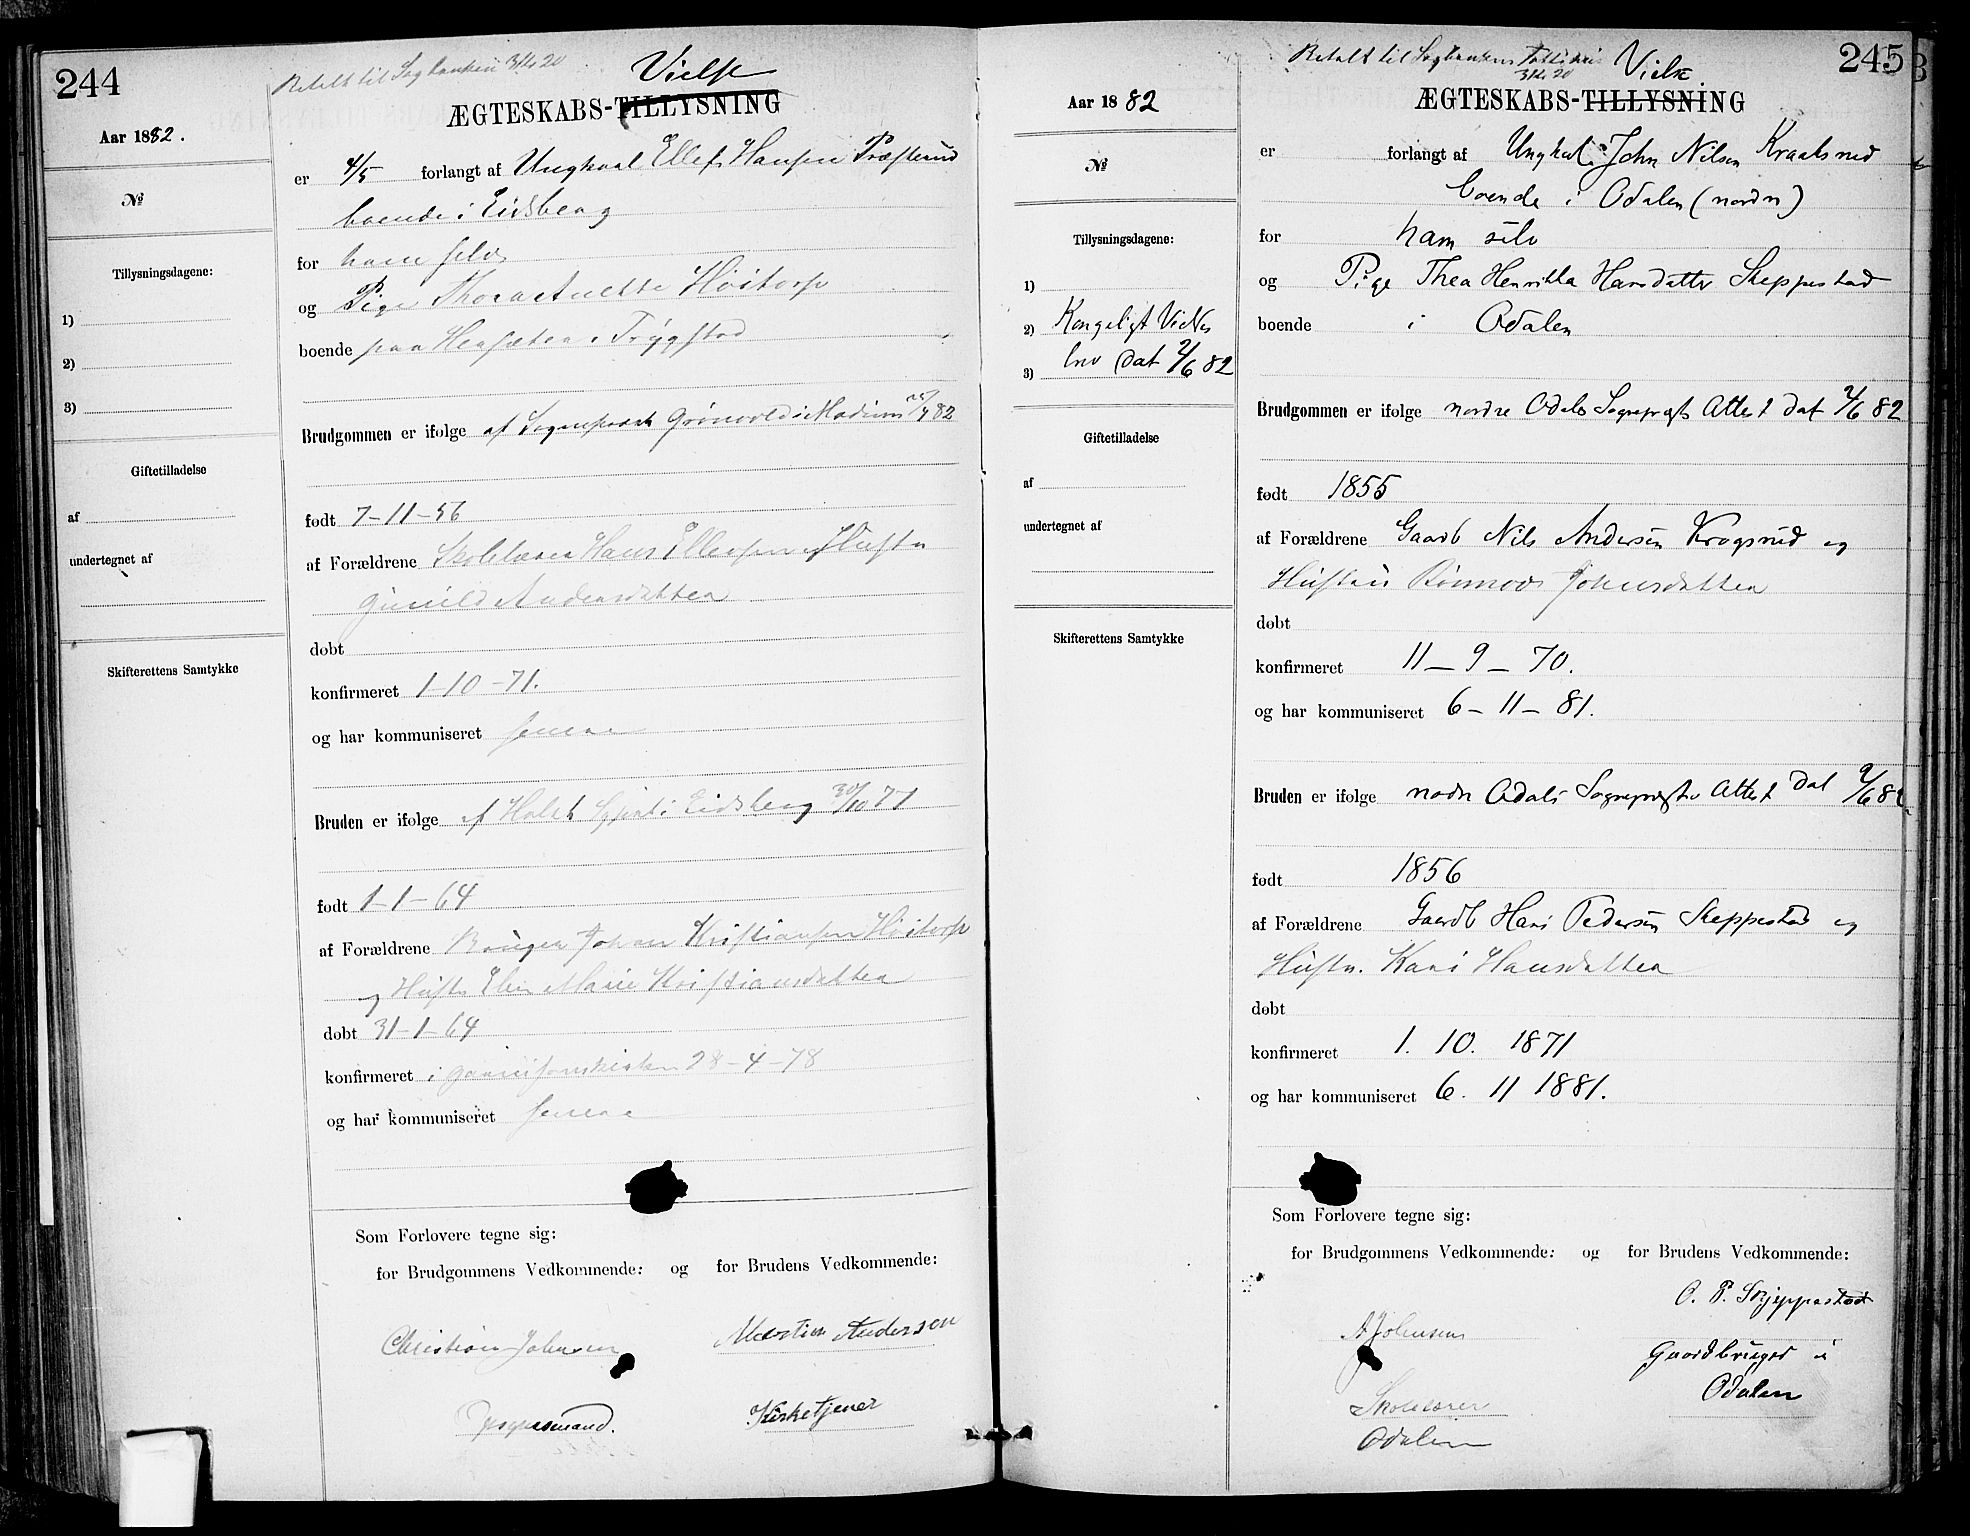 244
Betalt til Sogkassen 3 Kr 20
Vielse
ÆGTESKABS-TILLYSNING
Aar 1882.
er 4/5 forlangt af Ungkarl Ellef Hansen Præsterud
boende i Eidsberg
№
for ham selv
Tillysningsdagene:
og Pige Thora Anette Höitorp
1)
boende paa Hensæter i Trygstad
2)
3)
Brudgommen er ifolge af Sogneprest Grönvold i Modum 25/4 82
Giftetilladelse
af
født 7-11-56
undertegnet af
af Forældrene Skolelærer Hans Ellefsen og Hustru
Gunild Andersdatter
døbt
Skifterettens Samtykke
konfirmeret 1-10-71.
og har kommuniseret senere
Bruden er ifolge af Holst i Eidsberg 30/10 77
født 1-1-64
af Forældrene Bruger Johan Kristiansen Höitorp
og Hustr Marie Kristiansdatter
døbt 31-1-64
konfirmeret i Garnisonskirken 28-4-78
og har kommuniseret senere
Som Forlovere tegne sig:
for Brudgommens Vedkommende: og for Brudens Vedkommende:
Christian Johnsen Martin Andersen
Kirketjener
245
Betalt til Sogkassens
3 Kr. 20
Vielse
ÆGTESKABS-TILLYSNING
Aar 1882
er forlangt af Ungkarl John Nilsen Kraaksrud
boende i Odalen (nordre)
№
for ham selv
Tillysningsdagene:
og Pige Thea Henrikka Hansdatter Skeppestad
1)
boende i Odalen
2) Kongeligt Vielses
3) brev dat 2/6 82
Brudgommen er ifolge nordre Odals Sogneprests Attest dat 2/6 82
Giftetilladelse
af
født 1855
undertegnet af
af Forældrene Gaardb Nils Andersen Krogsrud og
Hustru Rönnov Johnsdatter
døbt
Skifterettens Samtykke
konfirmeret 11-9-70.
og har kommuniseret 6-11-81.
Bruden er ifolge nordr Odals Sogneprests Attest dat 2/6 82
født 1856
af Forældrene Gaardb Hans Pedersen Skeppestad og
Hustr. Kari Hansdatter
døbt
konfirmeret 1. 10. 1871
og har kommuniseret 6. 11 1881.
Som Forlovere tegne sig:
for Brudgommens Vedkommende: og for Brudens Vedkommende:
O. P. Skjeppestad
A Johnsen
Gaardbruger i
Odalen
Skolelærer
Odalen